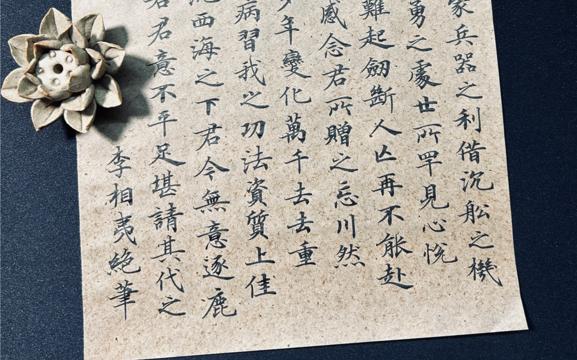 家兵器之利借沉舩之機
勇之處世所罕見心悅
難起劒斷人亡再不能赴
感念君所贈之忘川然
年變化萬千去去重
病習我之功法資質上佳
西海之下君今無意逐鹿
君意不平足堪請其代之
李相夷絕筆